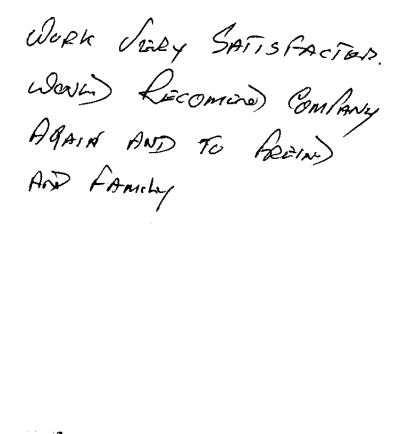 Work Very Satisfacted.
Would Recomend Company
Again and to Freind
and Family